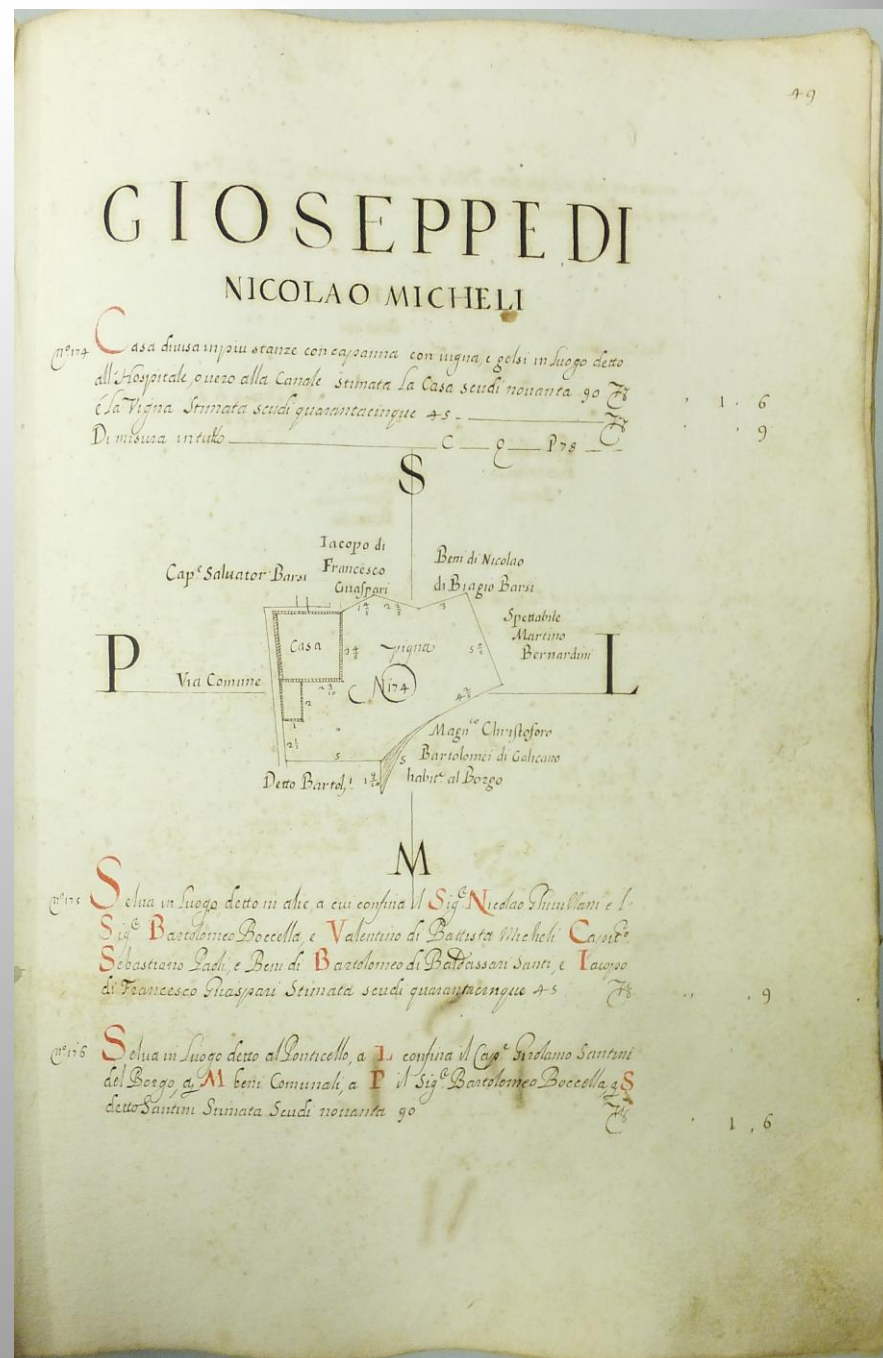 49
GIOSEPPE DI
NICOLAO MICHELI
nº 174 Casa diuisa in piu stanze con capanna con uigna, e gelsi in luogo detto
all'Hospitale, ouero alla Canale stimata La Casa scudi nouanta 90 1 . 6
e La Vigna Stimata scudi quarantacinque 45 9
Di misura in tutto C P 78
S
Iacopo di
Francesco
Guaspari
Cap.e Saluator Barsi
Beni di Nicolao
di Biagio Barsi
Spettabile
Martino
Bernardini
P
L
Casa
uigna
N 174
Via Comune
Magn.co Christoforo
Bartolomei di Galicano
habit.e al Borgo
Detto Bartol.i
M
nº 175 Selua in Luogo detto in alie, a cui confina il Sig.e Nicolao e l
Sig.e Bartolomeo Boccella, e Valentino di Battista Micheli Capit.o
Sebastiano Paoli, e Beni di Bartolomeo di Baldassari Santi, e Iacopo
di Francesco Guaspari Stimata scudi quarantacinque 45 9
nº 176 Selua in Luogo detto al Ponticello, a L confina il Cap.e Girolamo Santini
del Borgo, a M beni Comunali, a P il Sig.e Bartolomeo Boccella, a S
detto Santini Stimata Scudi nouanta 90 1 . 6